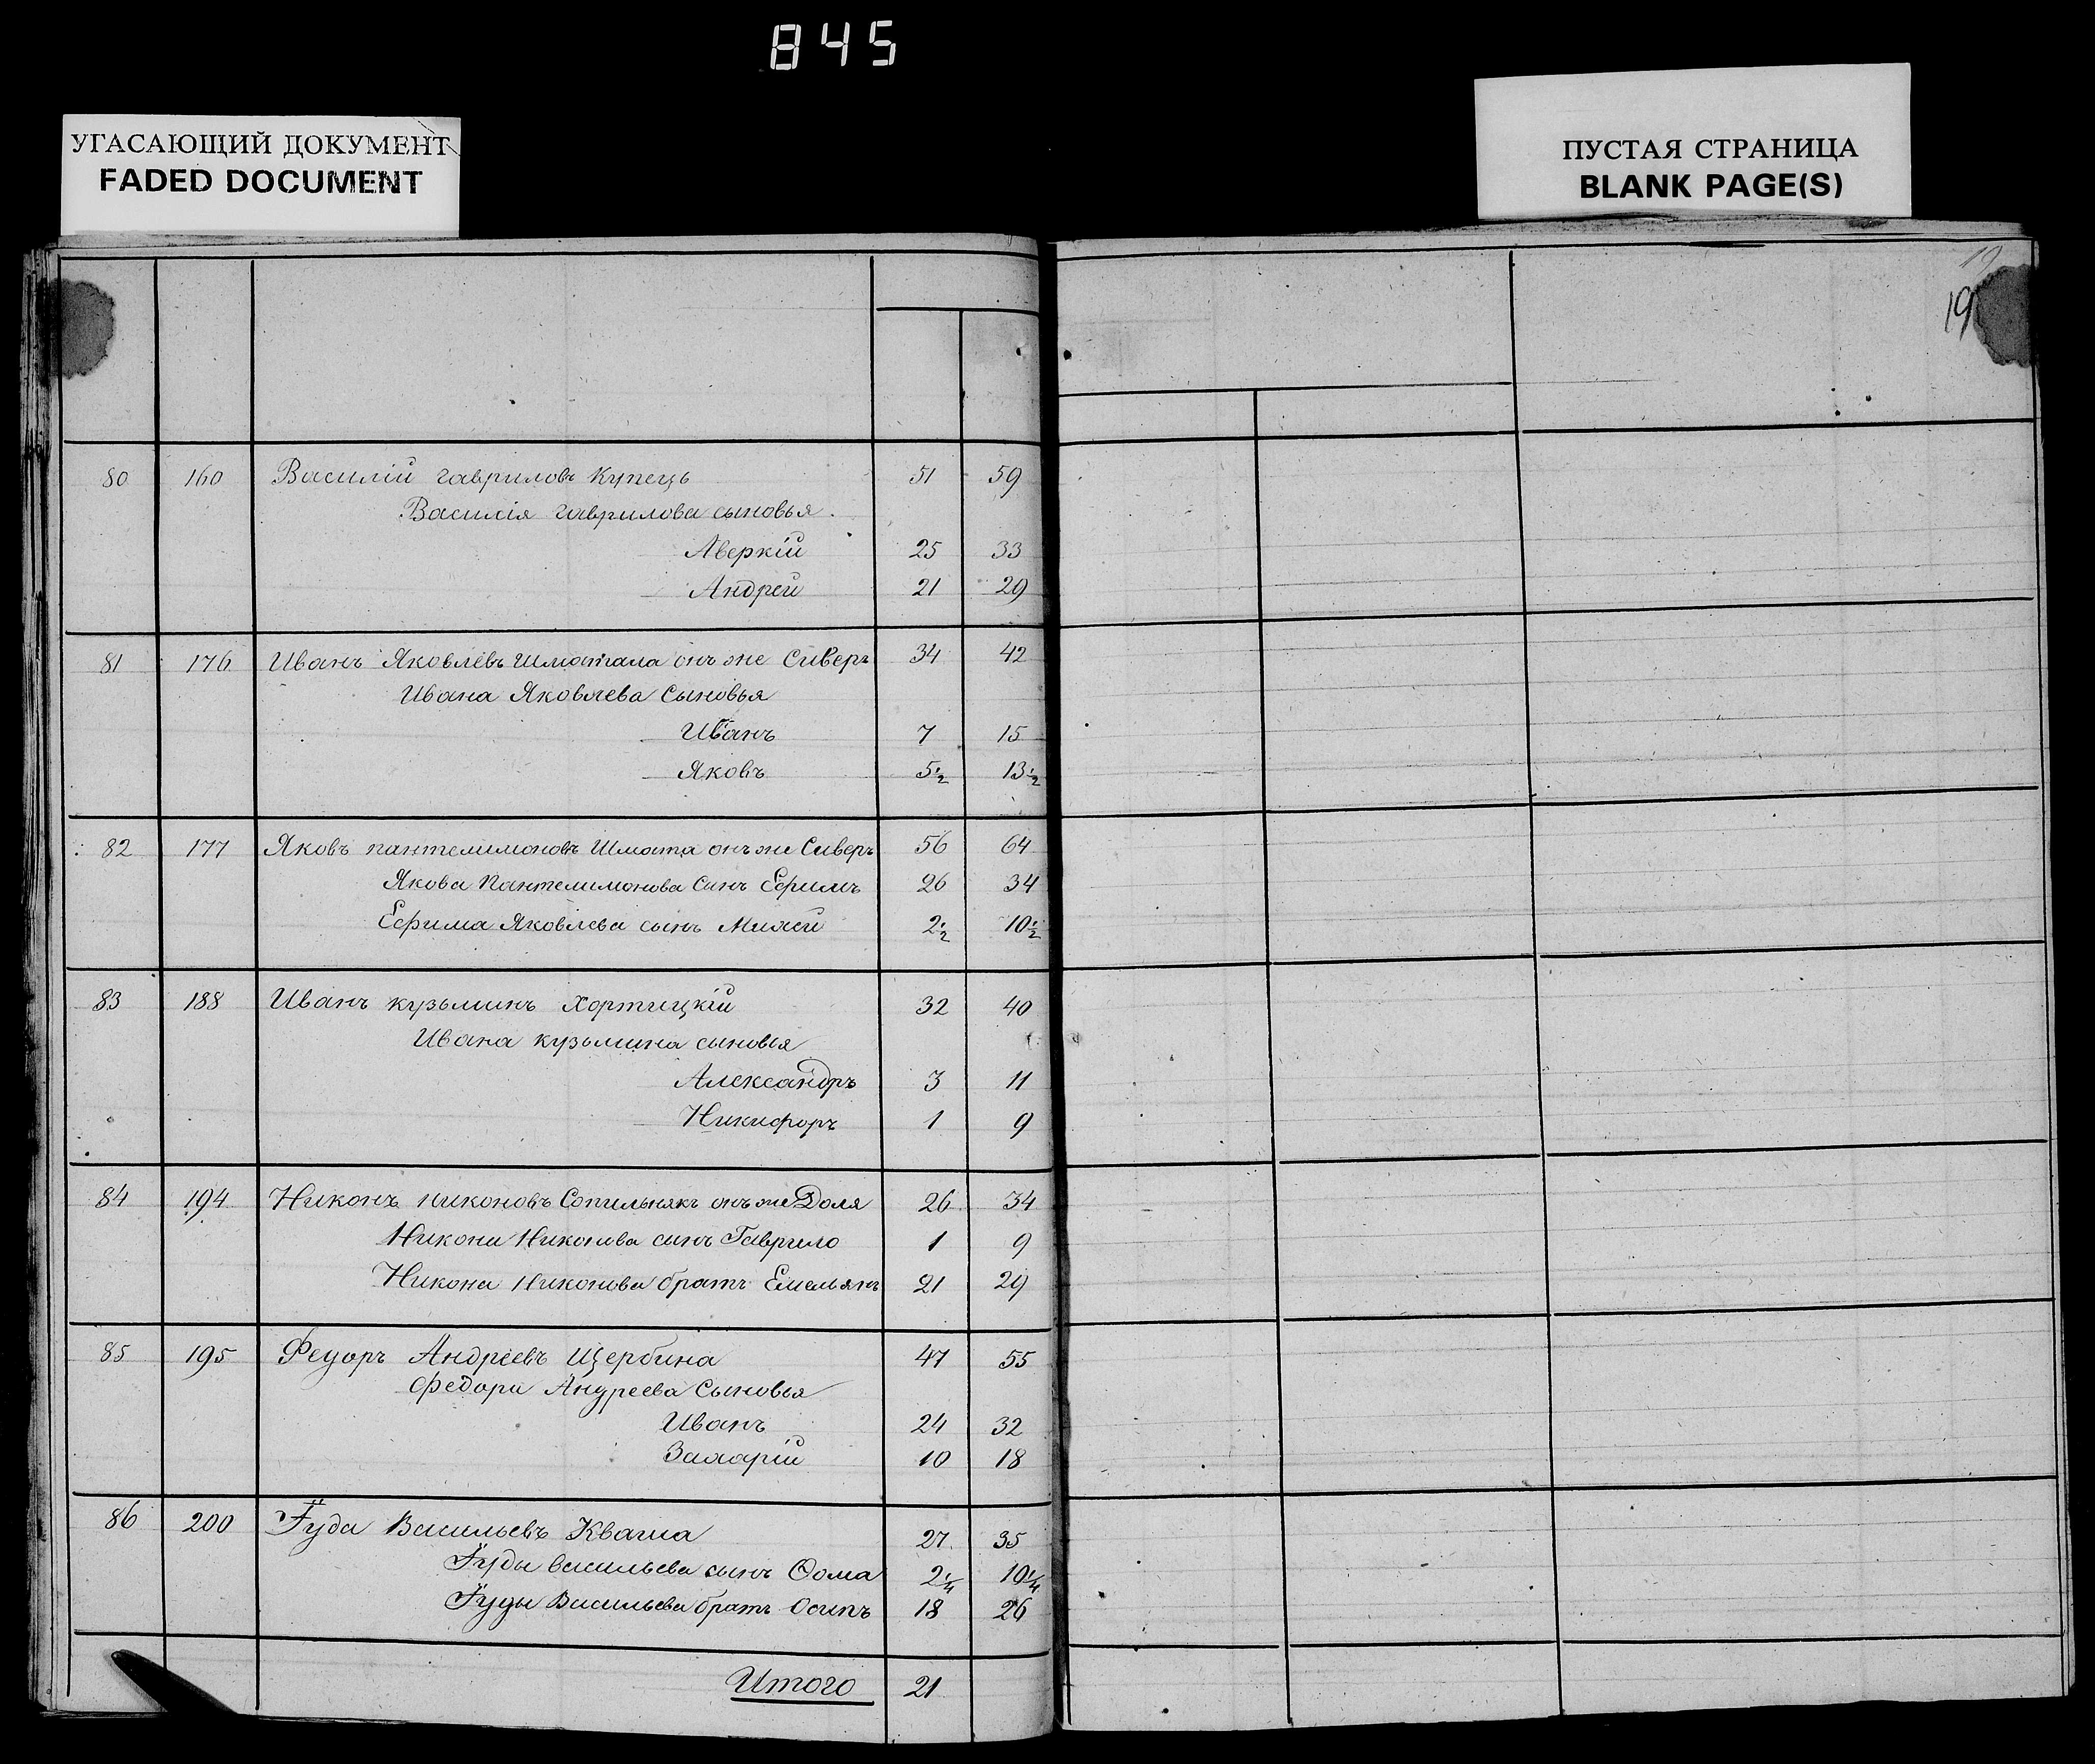 845
УГАСАЮЩИЙ ДОКУМЕНТ
FADED DOCUMENT
ПУСТАЯ СТРАНИЦА
BLANK PAGE(S)
19
19
80 160 Василій Гавриловъ Купецъ 51 59
Василія Гаврилова сыновья
Аверкій 25 33
Андрей 21 29
81 176 Иванъ Яковлевъ Шматала онъ же Сиверъ 34 42
Ивана Яковлева Сыновья
Иванъ 7 15
Яковъ 5½ 13½
82 177 Яковъ Пантелимоновъ Шмата онъ же Сиверъ 56 64
Якова Пантелимонова Сынъ Ефимъ 26 34
Ефима Яковлева сынъ Михей 2½ 10½
83 188 Иванъ Кузьминъ Хортицкій 32 40
Ивана Кузьмина сыновья
Александръ 3 11
Никифоръ 1 9
84 194 Никонъ Никоновъ Сопильнякъ онъ же Доля 26 34
Никона Никонова сынъ Гаврило 1 9
Никона Никонова братъ Емельянъ 21 29
85 195 Федоръ Андреевъ Щербина 47 55
Федора Андреева Сыновья
Иванъ 24 32
Захарій 10 18
86 200 Іуда Васильевъ Кваша 27 35
Іуды Васильева сынъ Ѳома 2¼ 10¼
Іуды Васильева братъ Осипъ 18 26
Итого 21